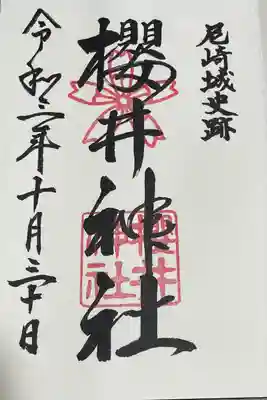 尼崎城史跡
櫻井神社
令和二年十月三十日
櫻井神社